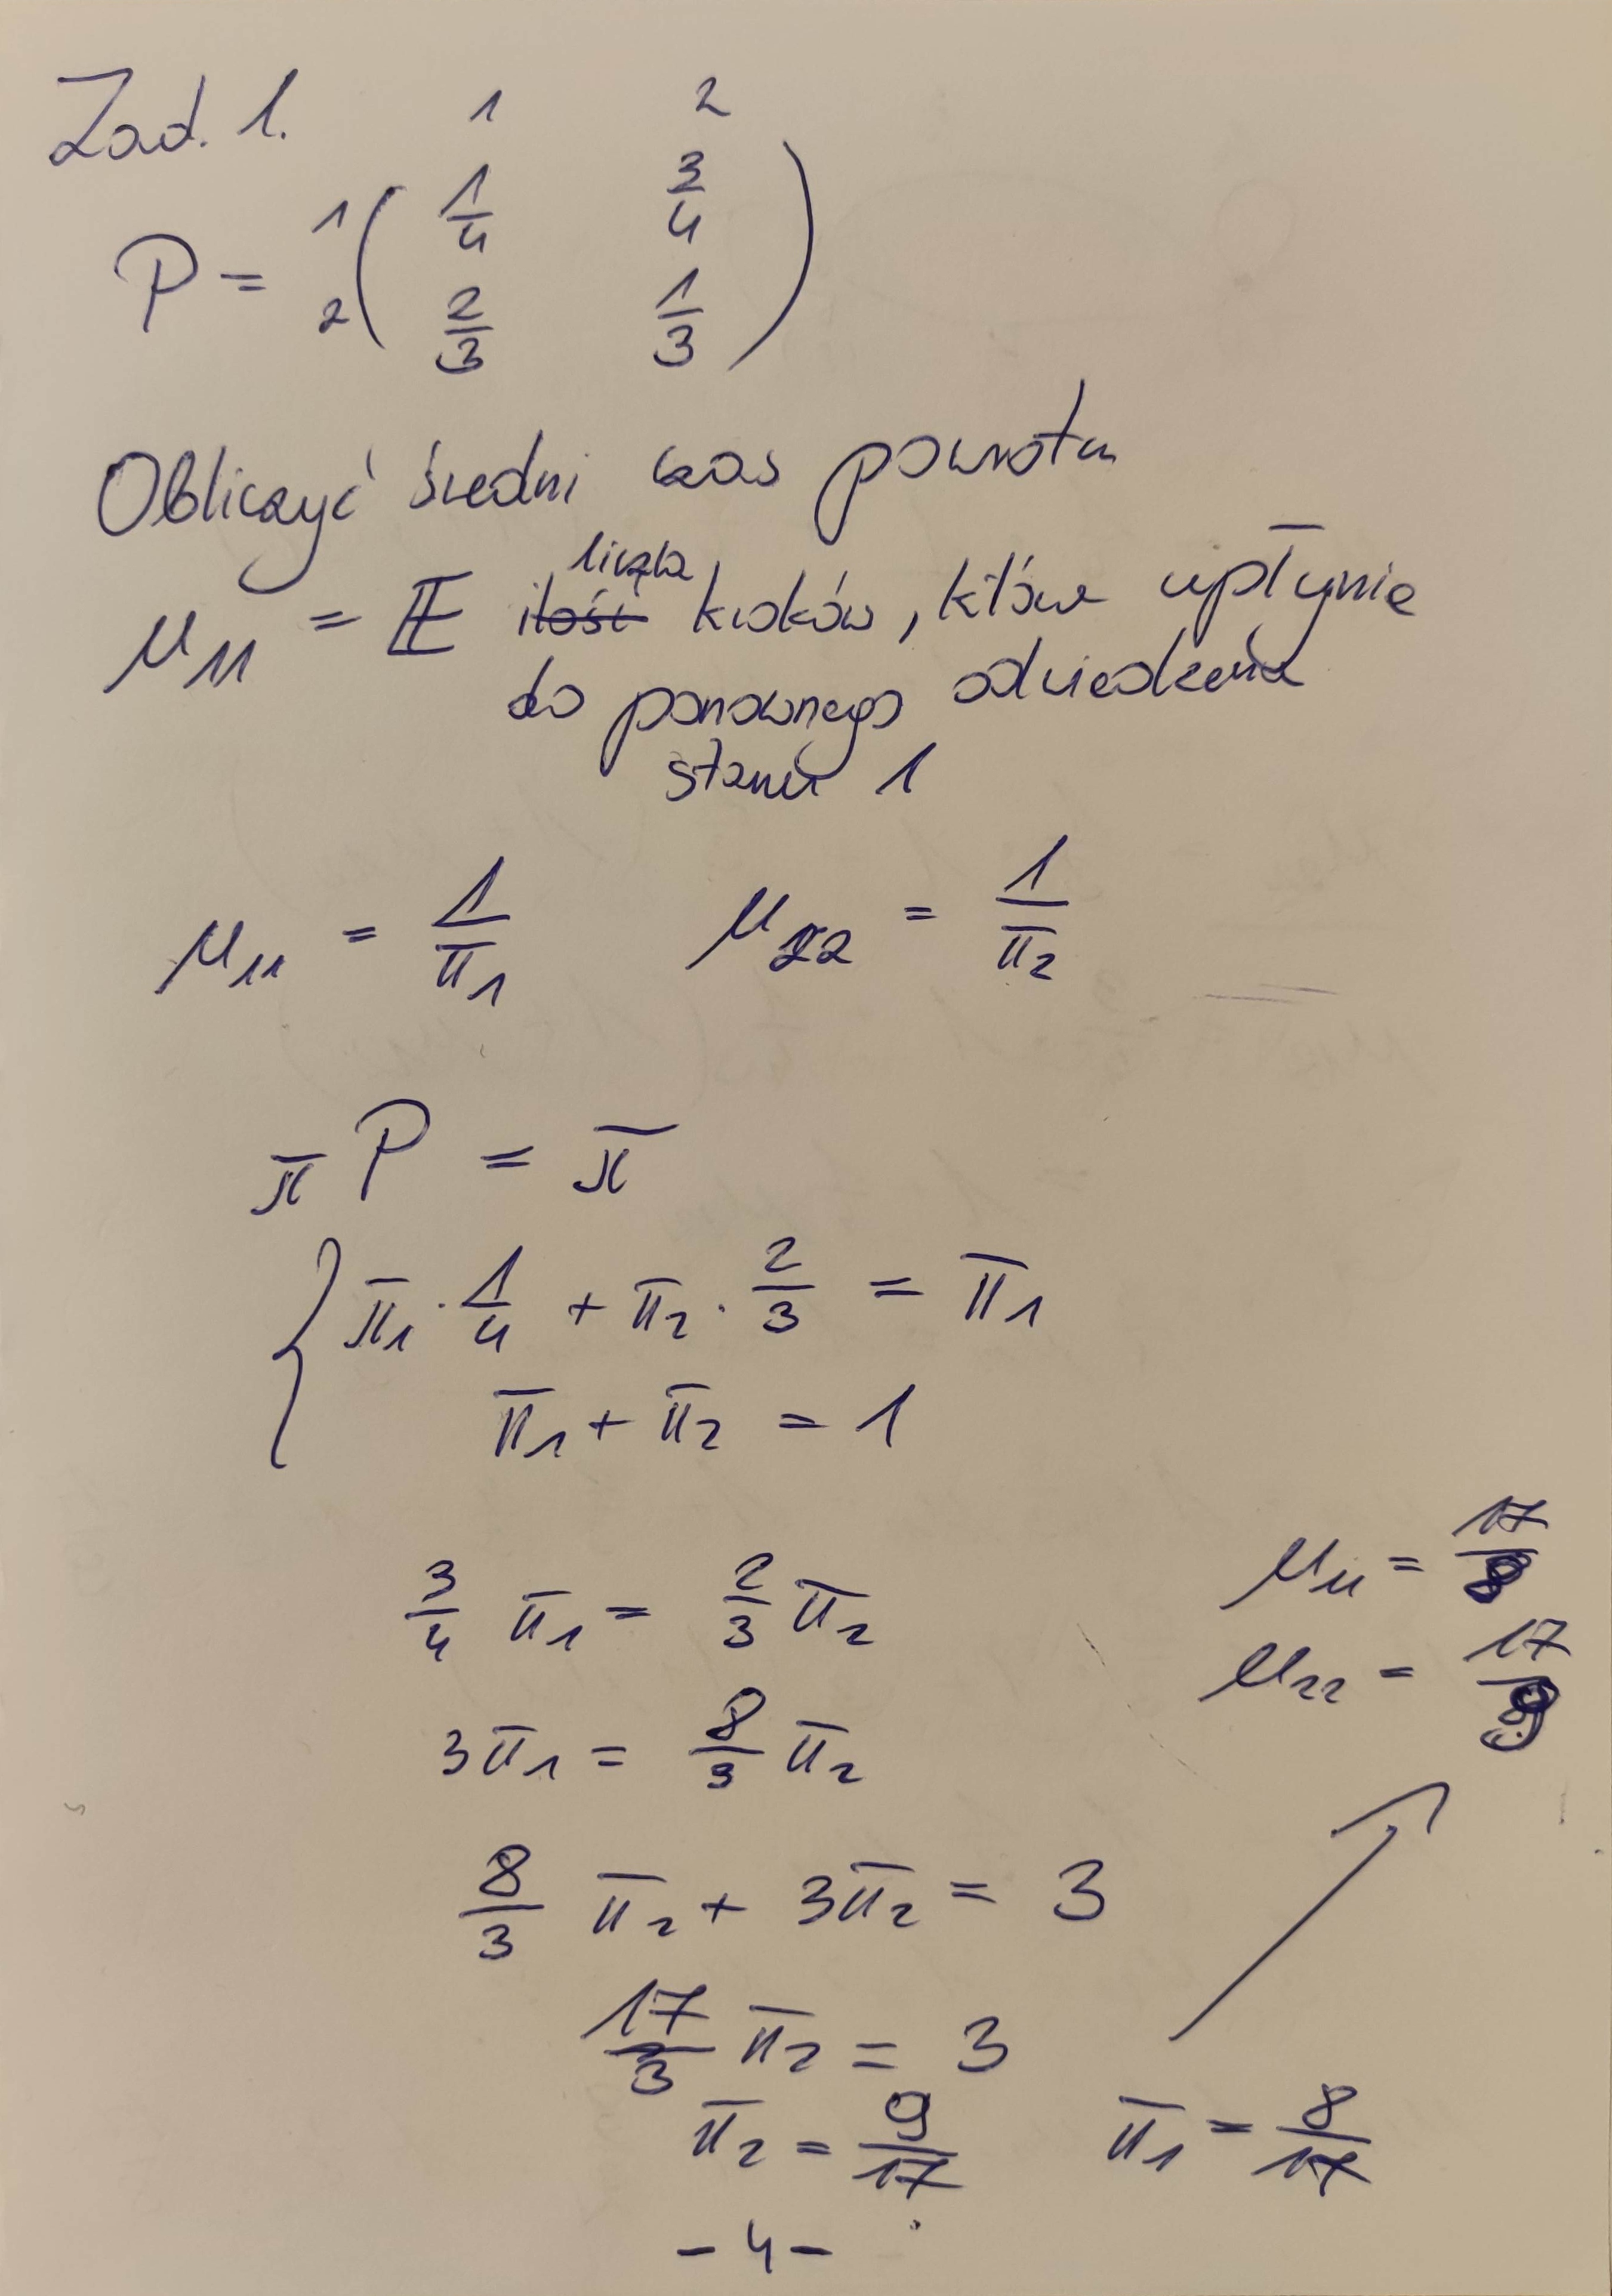 Zad. 1.
1 2
P = 1 ( 1/4 3/4 )
2 ( 2/3 1/3 )
Obliczyć średni czas powrotu
liczba
μ₁₁ = 𝔼 ilość kroków, które upłynie
do ponownego odwiedzenia
stanu 1
μ₁₁ = 1/π₁ μ₂₂ = 1/π₂
π P = π
{ π₁ · 1/4 + π₂ · 2/3 = π₁
π₁ + π₂ = 1
3/4 π₁ = 2/3 π₂
3π₁ = 8/3 π₂
8/3 π₂ + 3π₂ = 3
17/3 π₂ = 3
π₂ = 9/17 π₁ = 8/17
μ₁₁ = 17/8
μ₂₂ = 17/9
- 4 -